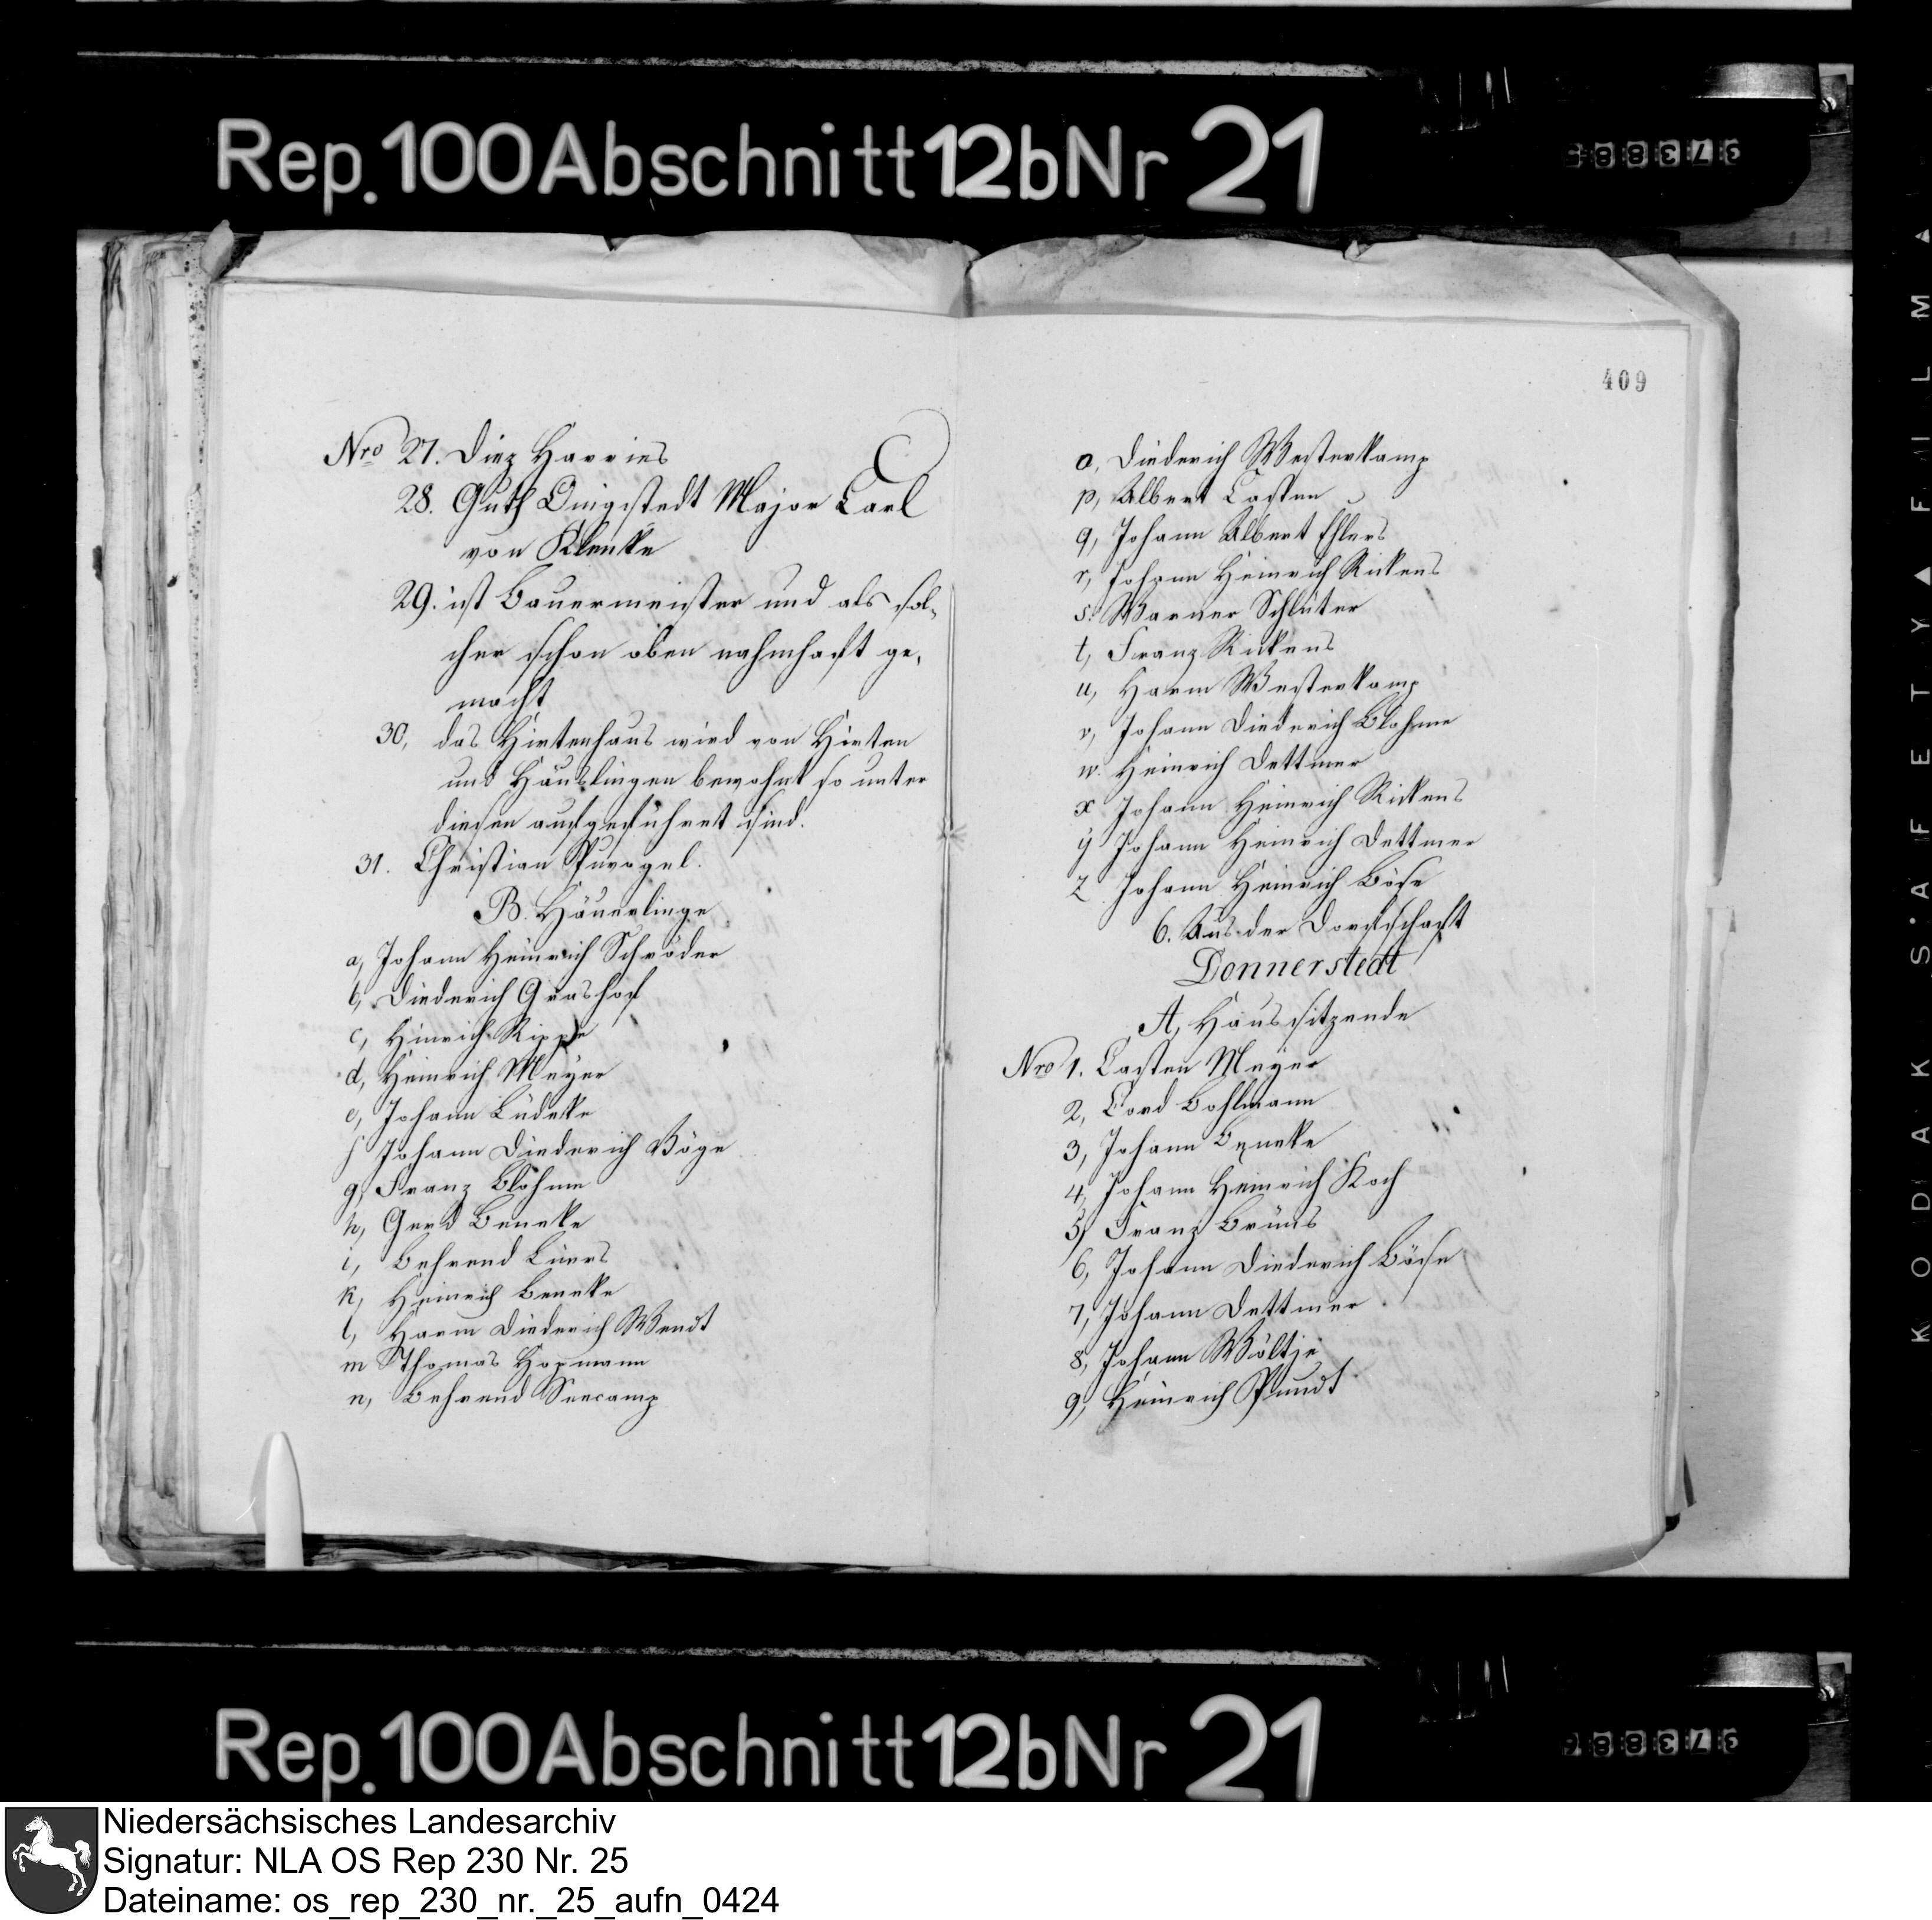 Rep. 100 Abschnitt 12b Nr 21
409
Nro 27. Diez Harries
28. Guth Dingstedt Major Carl
von Klenke
29. ist Bauermeister und als sol-
cher schon oben nahmhaft ge-
macht
30, das Hirtenhaus wird von Hirten
und Häuslingen bewohnt so unter
diesen aufgeführet sind.
31. Christian Puvogel.
B. Häuerlinge
a, Johann Heinrich Schröder
b, Diederich Grashof
c, Hinrich Rippe
d, Heinrich Meyer
e, Johann Lüdeke
f Johann Diederich Böge
g, Franz Blohme
h, Gerd Beneke
i, Behrend Lüers
k, Heinrich Beneke
l, Harm Diederich Wendt
m Thomas Hopmann
n, Behrend Seecamp
o, Diederich Westerkamp
p, Albert Casten
q, Johann Albert Ehlers
r, Johann Heinrich Rickens
s. Warner Schlüter
t, Franz Rickens
u, Harm Westerkamp
v, Johann Diederich Blohme
w. Heinrich Dettmer
x Johann Heinrich Rickens
y Johann Heinrich Dettmer
z Johann Heinrich Böse
6. Aus der Dorfschaft
Donnerstedt
A, Haussitzende
Nro 1. Casten Meyer
2, Cord Bohlmann
3, Johann Beneke
4, Johann Heinrich Koch
5, Franz Brüns
6, Johann Diederich Böse
7, Johann Dettmer
8, Johann Wöltje
9, Heinrich Pundt
Rep. 100 Abschnitt 12b Nr 21
KODAK SAFETY FILM
Niedersächsisches Landesarchiv
Signatur: NLA OS Rep 230 Nr. 25
Dateiname: os_rep_230_nr._25_aufn_0424